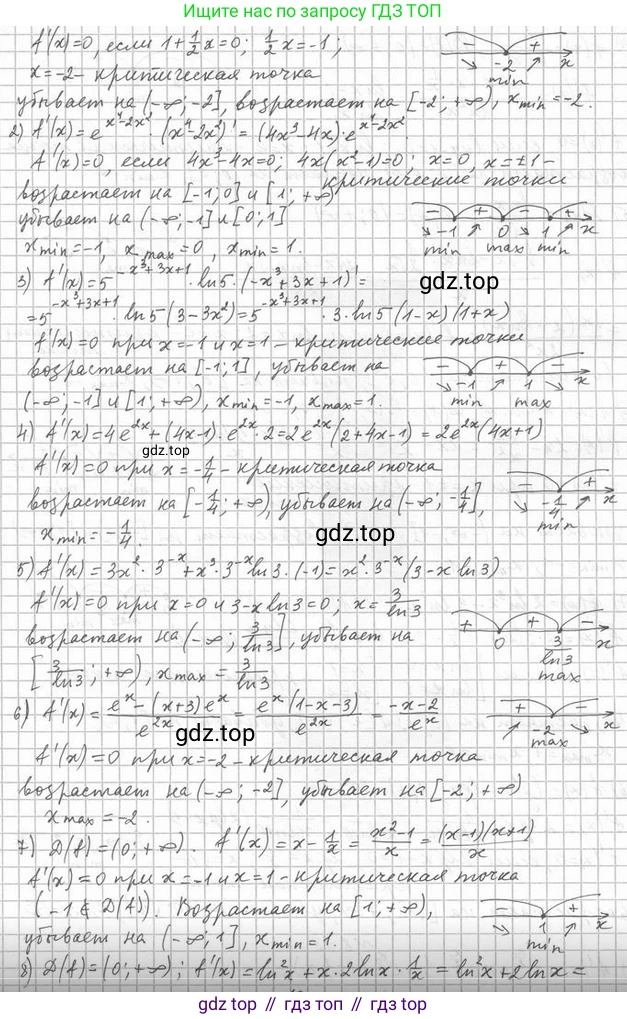 Ищите нас по запросу ГДЗ ТОП
f'(x)=0, если 1+1/2x=0; 1/2x=-1;
x=-2 - критическая точка
- + -2 min x
убывает на (-∞;-2], возрастает на [-2;+∞), x min = -2.
2) f'(x)=e^(x⁴-2x²)·(x⁴-2x²)'=(4x³-4x)·e^(x⁴-2x²).
f'(x)=0, если 4x³-4x=0; 4x(x²-1)=0; x=0, x=±1 -
критические точки
возрастает на [-1;0] и [1;+∞)
убывает на (-∞;-1] и [0;1]
- + - + -1 0 1 x min max min
x min=-1, x max=0, x min=1.
3) f'(x)=5^(-x³+3x+1)·ln5·(-x³+3x+1)'=
gdz.top
=5^(-x³+3x+1)·ln5(3-3x²)=5^(-x³+3x+1)·3·ln5(1-x)(1+x)
f'(x)=0 при x=-1 и x=1 - критические точки
возрастает на [-1;1], убывает на
- + - -1 1 x min max
(-∞;-1] и [1;+∞), x min=-1, x max=1.
4) f'(x)=4e^(2x)+(4x-1)·e^(2x)·2=2e^(2x)(2+4x-1)=2e^(2x)(4x+1)
gdz.top
f'(x)=0 при x=-1/4 - критическая точка
возрастает на [-1/4;+∞), убывает на (-∞;-1/4],
- + -1/4 x min
x min=-1/4.
gdz.top
5) f'(x)=3x²·3^(-x)+x³·3^(-x)ln3·(-1)=x²·3^(-x)(3-x ln3)
f'(x)=0 при x=0 и 3-x ln3=0; x=3/ln3
возрастает на (-∞;3/ln3], убывает на
+ + - 0 3/ln3 x max
[3/ln3;+∞), x max=3/ln3
6) f'(x)=(e^x-(x+3)e^x)/e^(2x)=e^x(1-x-3)/e^(2x)=(-x-2)/e^x
+ - -2 x max
gdz.top
f'(x)=0 при x=-2 - критическая точка
возрастает на (-∞;-2], убывает на [-2;+∞)
x max=-2.
7) D(f)=(0;+∞). f'(x)=x-1/x=(x²-1)/x=(x-1)(x+1)/x
f'(x)=0 при x=-1 и x=1 - критическая точка
(-1∉D(f)). Возрастает на [1;+∞),
- + 1 x min
убывает на (-∞;1], x min=1.
8) D(f)=(0;+∞); f'(x)=ln²x+x·2lnx·1/x=ln²x+2lnx=
gdz.top // gdz.top // gdz.top